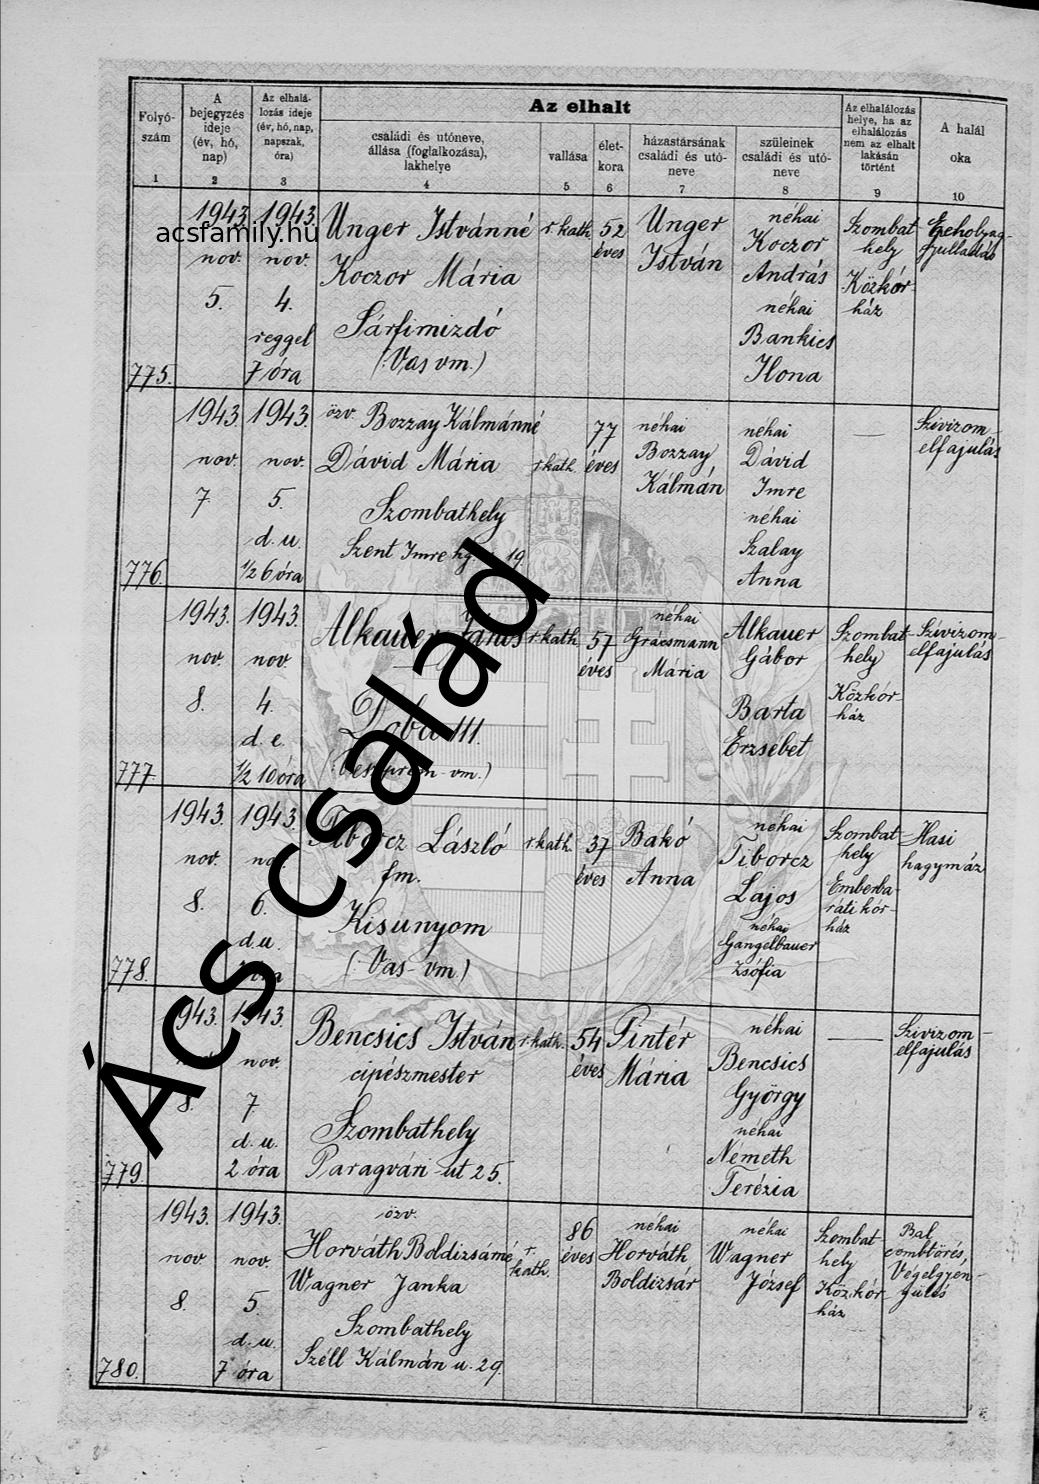 Folyó-
szám
1
A
bejegyzés
ideje
(év, hó,
nap)
2
Az elhalá-
lozás ideje
(év, hó, nap,
napszak,
óra)
3
Az elhalt
családi és utóneve,
állása (foglalkozása),
lakhelye
4
vallása
5
élet-
kora
6
házastársának
családi és utó-
neve
7
szüleinek
családi és utó-
neve
8
Az elhalálozás
helye, ha az
elhalálozás
nem az elhalt
lakásán
történt
9
A halál
oka
10
acsfamily.hu
Ács család
775.
1943
nov.
5.
1943.
nov.
4.
reggel
7 óra
Unger Istvánné
Koczor Mária
Sárfimizdó
(: Vas vm.)
r. kath.
52
éves
Unger
István
néhai
Koczor
András
néhai
Bankics
Ilona
Szombat-
hely
Közkór-
ház
Epehólyag-
gyulladás
776.
1943.
nov.
7.
1943.
nov.
5.
d. u.
1/2 6 óra
özv. Bozzay Kálmánné
Dávid Mária
Szombathely
Szent Imre hg. 19.
r. kath.
77
éves
néhai
Bozzay
Kálmán
néhai
Dávid
Imre
néhai
Szalay
Anna
—
Szivizom-
elfajulás
777.
1943.
nov.
8.
1943.
nov.
4.
d. e.
1/2 10 óra
Alkauer János
Doba 111.
(: Veszprém-vm.)
r. kath.
57
éves
néhai
Mária
Alkauer
Gábor
Barta
Erzsébet
Szombat-
hely
Közkór-
ház
Szivizom-
elfajulás
778.
1943.
nov.
8.
1943.
6.
d. u.
óra
Tiborcz László
fm.
Kisunyom
(: Vas-vm.)
r. kath.
37
éves
Bakó
Anna
néhai
Tiborcz
Lajos
néhai
Gangelbauer
Zsófia
Szombat-
hely
Emberba-
ráti kór-
ház
Hasi
hagymáz
779.
1943.
8.
1943.
nov.
7
d. u.
2 óra
Bencsics István
cipészmester
Szombathely
Paragvári-ut 25.
r. kath.
54
éves
Pintér
Mária
néhai
Bencsics
György
néhai
Németh
Terézia
—
Szivizom-
elfajulás
780.
1943.
nov.
8.
1943.
nov.
5.
d. u.
7 óra
özv.
Horváth Boldizsárné
Wagner Janka
Szombathely
Széll Kálmán u. 29.
r.
kath.
86
éves
néhai
Horváth
Boldizsár
néhai
Wagner
József
Szombat-
hely
Közkór-
ház
Bal
combtörés,
Végelgyen-
gülés